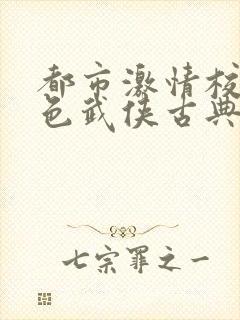 都市激情校
色武侠古典
七宗罪之一